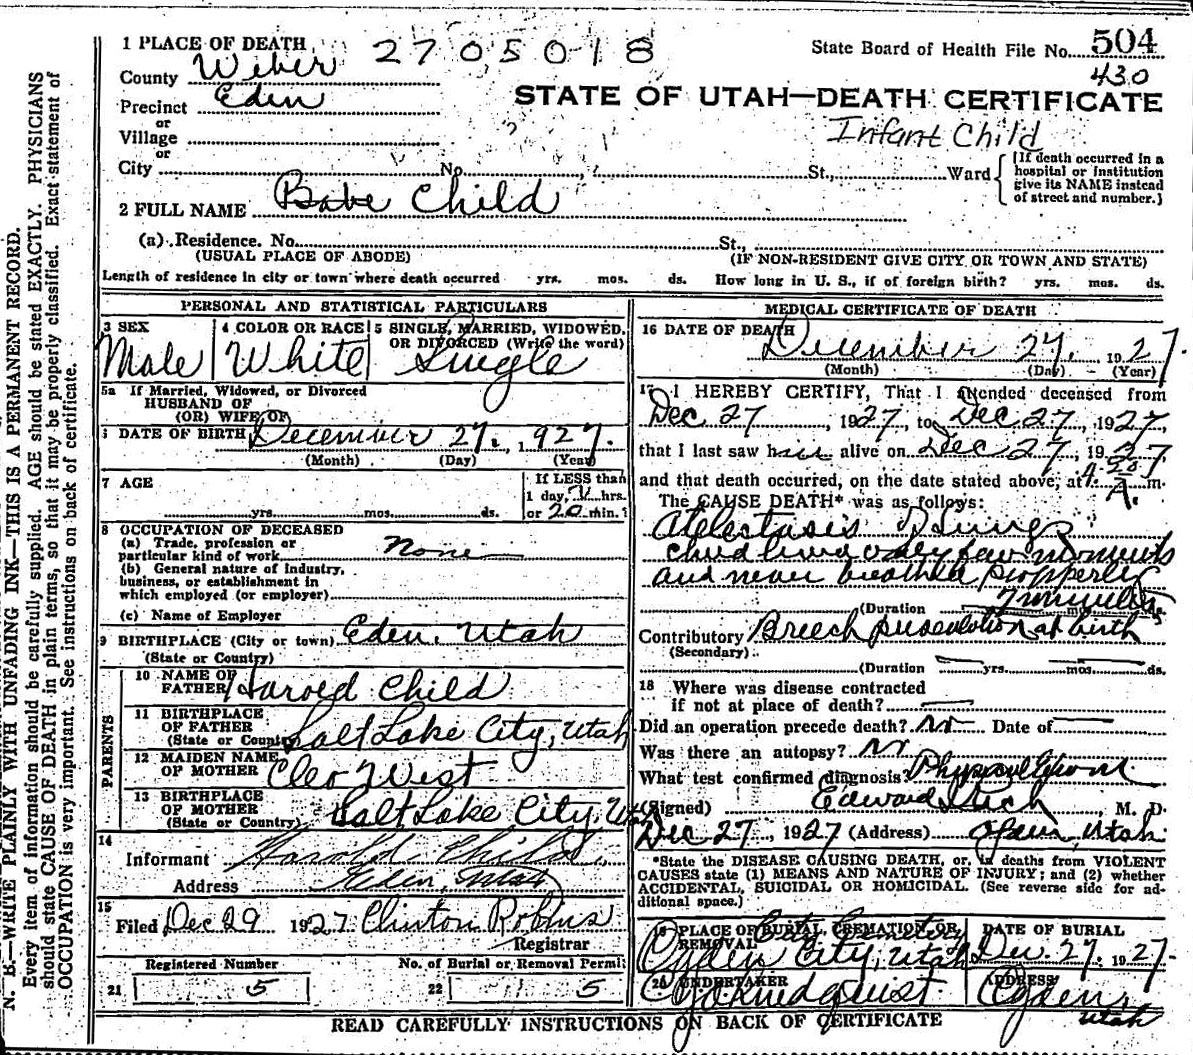 1 PLACE OF DEATH 2705018 State Board of Health File No. 504
County Weber 430
Precinct Eden STATE OF UTAH—DEATH CERTIFICATE
or
Village Infant Child
or
City No. St., Ward {[If death occurred in a hospital or institution give its NAME instead of street and number.]
2 FULL NAME Babe Child
(a) Residence. No. St.,
(USUAL PLACE OF ABODE) (IF NON-RESIDENT GIVE CITY OR TOWN AND STATE)
Length of residence in city or town where death occurred yrs. mos. ds. How long in U. S., if of foreign birth? yrs. mos. ds.
PERSONAL AND STATISTICAL PARTICULARS
3 SEX Male
4 COLOR OR RACE White
5 SINGLE, MARRIED, WIDOWED, OR DIVORCED (Write the word) Single
5a If Married, Widowed, or Divorced
HUSBAND OF
(OR) WIFE OF
DATE OF BIRTH December 27, 1927.
(Month) (Day) (Year)
7 AGE If LESS than
1 day, hrs.
yrs. mos. ds. or 20 min.
8 OCCUPATION OF DECEASED
(a) Trade, profession or
particular kind of work None
(b) General nature of industry,
business, or establishment in
which employed (or employer)
(c) Name of Employer
9 BIRTHPLACE (City or town) Eden, Utah
(State or Country)
PARENTS
10 NAME OF FATHER Harold Child
11 BIRTHPLACE OF FATHER (State or Country) Salt Lake City, Utah
12 MAIDEN NAME OF MOTHER Cleo West
13 BIRTHPLACE OF MOTHER (State or Country) Salt Lake City, Utah
14 Informant Harold Child,
Address Eden, Utah,
15 Filed Dec 29 1927 Clinton Robins
Registrar
Registered Number No. of Burial or Removal Permit
21 5 22 5
MEDICAL CERTIFICATE OF DEATH
16 DATE OF DEATH
December 27, 1927.
(Month) (Day) (Year)
17 I HEREBY CERTIFY, That I attended deceased from
Dec 27, 1927, to Dec 27, 1927,
that I last saw him alive on Dec 27, 1927
and that death occurred, on the date stated above, at A. m.
The CAUSE DEATH* was as follows:
Atelectasis of Lungs
child lived only few moments
and never breathed properly
(Duration minutes
Contributory Breech presentation at birth
(Secondary)
(Duration yrs. mos. ds.
18 Where was disease contracted
if not at place of death?
Did an operation precede death? No Date of
Was there an autopsy? No
What test confirmed diagnosis? Physical
(Signed) Edward Rich, M. D.
Dec 27, 1927 (Address) Ogden, Utah
*State the DISEASE CAUSING DEATH, or, in deaths from VIOLENT
CAUSES state (1) MEANS AND NATURE OF INJURY; and (2) whether
ACCIDENTAL, SUICIDAL OR HOMICIDAL. (See reverse side for ad-
ditional space.)
19 PLACE OF BURIAL, CREMATION, OR REMOVAL City Cemetery
Ogden City, Utah
DATE OF BURIAL
Dec. 27, 1927.
20 UNDERTAKER ADDRESS
Ogden, Utah
READ CAREFULLY INSTRUCTIONS ON BACK OF CERTIFICATE
N. B.—WRITE PLAINLY WITH UNFADING INK—THIS IS A PERMANENT RECORD.
Every item of information should be carefully supplied. AGE should be stated EXACTLY. PHYSICIANS
should state CAUSE OF DEATH in plain terms, so that it may be properly classified. Exact statement of
OCCUPATION is very important. See instructions on back of certificate.